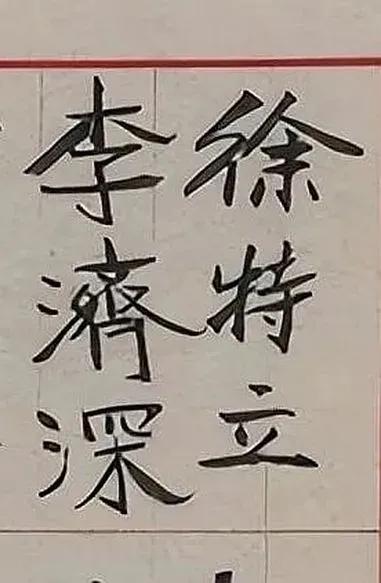 徐特立
李濟深